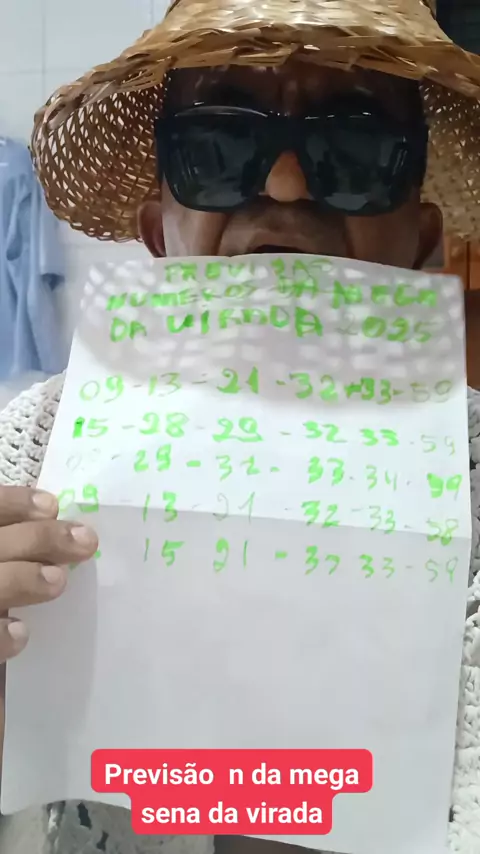 PREVIZAO
NUMEROS DA MEGA
DA VIRADA 2025
09-13-21-32-33-59
15-28-29-32 33-59
29-32-33-34-59
09 13-21-32-33-58
15 21-32 33-59
Previsão n da mega
sena da virada